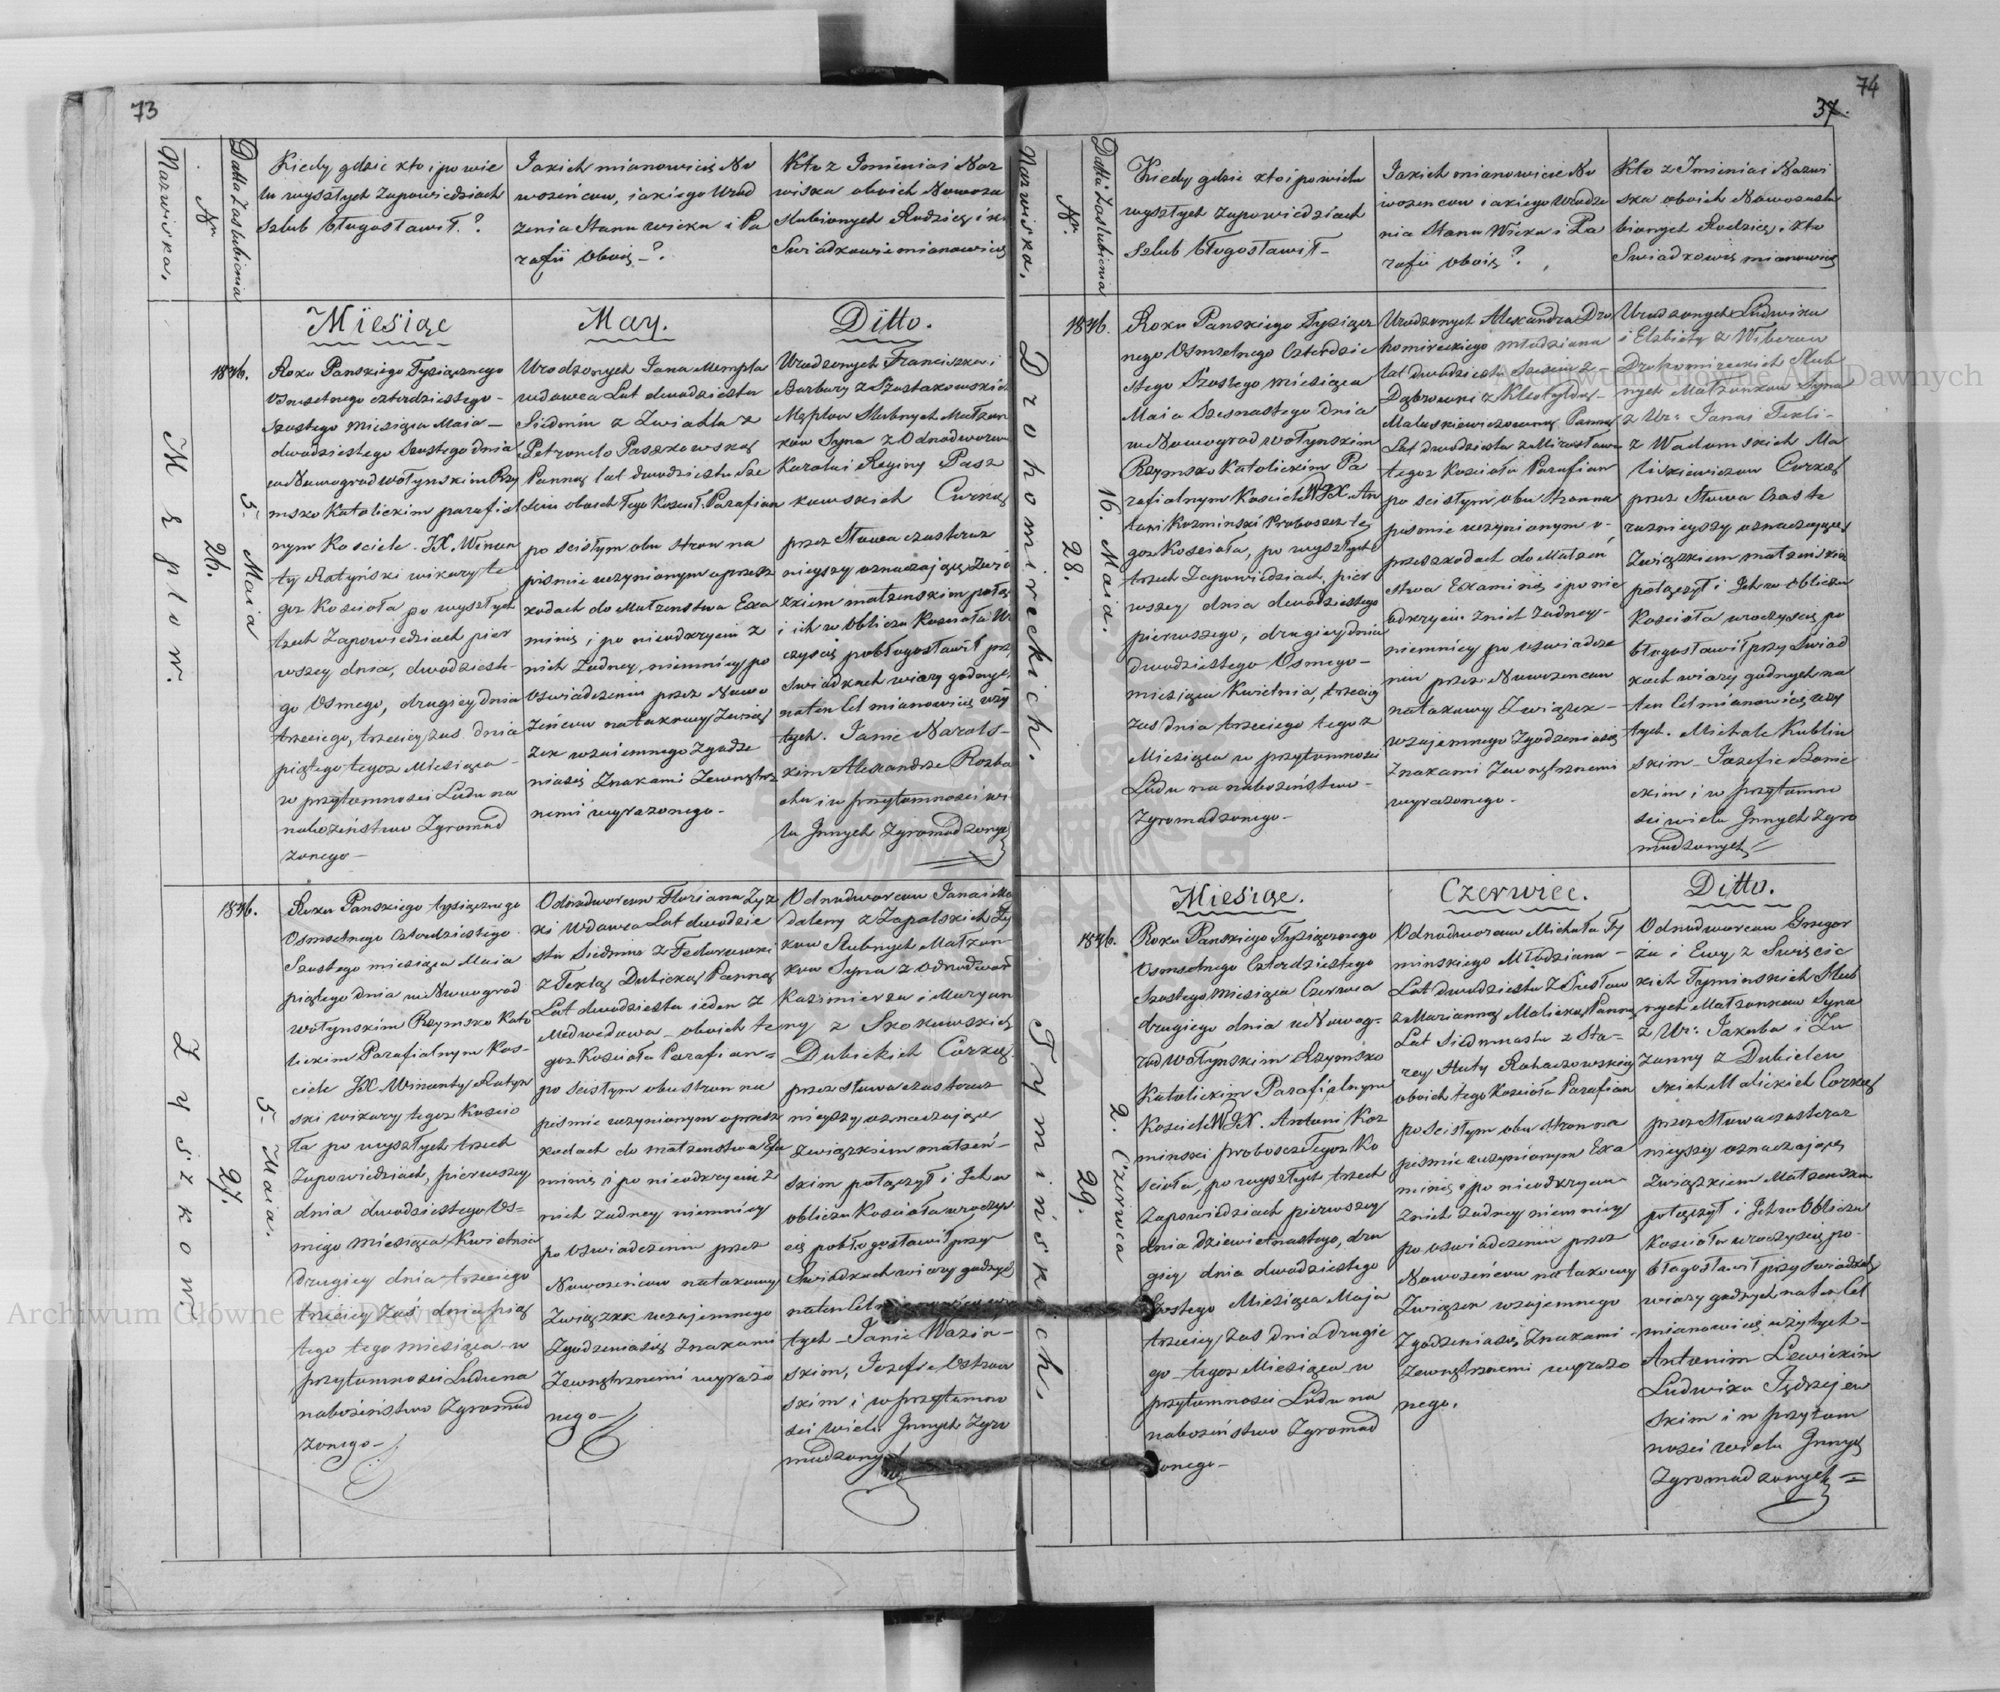 73
Nazwiska.
Nr.
Datta Zaslubienia
Kiedy gdzie kto i po wie
lu wyszłych Zapowiedziach
szlub błogosławił.?
Jakich mianowicię No
wozeńcow, iakiego Urod
zenia Stanu wieku i Pa
rafii oboię_?
Kto z Imienia i Naz
wiska oboich Nowoza
slubionych Rodzicę i kto
Swiadkowie mianowicię
Męplow.
26.
5. Maia
Miesiąc
1846.
Roku Panskiego Tysiącznego
Osmsetnego czterdziestego
szostego miesiąca Maia
dwudziestego szostego dnia
w Nowogradwołynskim Rzy
msko Katolickim parafial
nym Kosciele JX. Wincen
ty Ratyński wikary te
goz Koscioła po wyszłych
trzech Zapowiedziach pier
wszey dnia, dwudziest
go Osmego, drugiey dnia
trzeciego, trzeciey zas dnia
piątego tegoz Miesiąca
w przytomnosci Ludu na
nabozeństwo Zgromad
zonego
May.
Urodzonych Jana Mempla
wdowca Lat dwudziestu
Siedmiu z Zwiahla z
Petronelo Paszkowską
Panną lat dwudziestu Sze
sciu oboich Tego Koscioł. Parafian
po scisłym obu stron na
pismie uczynionym o przesz
kodach do Małzenstwa Exa
minię i po nieodkryciu z
nich Zadney, niemniey po
Oswiadczeniu przez Nowo
Zeńcow natakowy Zwią
zek wzaiemnego Zgadze
niasię Znakami Zewnętrz
nemi wyrazonego
Ditto.
Urodzonych Franciszka i
Barbary z Szostakowskich
Męplow Slubnych Małzon
kow Syna z Odnodworcow
Karola i Reginy Pasz
kowskich Curką
przez Słowa czas teraz
nieyszy oznaczaiącę Zwią
zkiem małzenskim połą
i ich w Obliczu Koscioła U
czyscię pobłogosławił prz
Swiadkach wiary godnych
naten cel mianowicię uży
tych. Janie Narols
kim Alexandrze Rozba
chu i w przytomnosci wi
lu Innych Zgromadzonych
Zyszkow.
27.
5. Maia.
1846.
Roku Panskiego tysiącznego
Osmsetnego Czterdziestego
Szostego miesiąca Maia
piątego dnia w Nowograd
wołynskim Rzymsko Kato
lickim Parafialnym Kos
ciele JX Wincenty Ratyn
ski wikary tegoz Koscio
ła po wyszłych trzech
Zapowiedziach, pierwszey
dnia dwudziestego Os=
mego miesiąca Kwietnia
drugiey dnia trzeciego
trzeciey zaś dnia pią
tego tego miesiąca w
przytomnosci Ludu na
nabozeństwo Zgromad
zonego
Odnodworcow Floriana Zysz
ki Wdowca Lat dwudzie
stu Siedmiu z Fedorowki
z Teklą Dubicką Panną
Lat dwudziestu ieden z
Medwedowa oboich te
goz Kosciola Parafian=
po scisłym obu stron na
pismie uczynionym o przesz
kodach do małzenstwa Exa
minię i po nieodkryciu z
nich zadney niemniey
po Oswiadczeniu przez
Nowozeńcow natakowy
Związek wzajemnego
Zgodzeniasię Znakami
Zewnętrznemi wyrazo
nego
Odnodworcow Jana i Ma
daleny z Zapalskich Zy
kow Slubnych Małzon
kow Syna z Odnodwor
Kazimierza i Maryan
ny z Skokowskich
Dubickich Corką
przez słowa czas teraz
nieyszy oznaczaiące
Związkiem małzeń
skim połączył i Ich w
obliczu Koscioła uroczys
cię pobłogosławił przy
Swiadkach wiary godnych
naten cel
tych Janie Wazin
skim, Jozefie Ostrow
skim i w przytomno
sci wielu Innych Zgro
madzonych
74
37.
Nazwiska.
Nr.
Datta Zaslubienia
Kiedy gdzie kto i po wielu
wyszłych zapowiedziach
Szlub błogosławił
Jakich mianowicie No
wozencow iakiego Urodze
nia Stanu Wieku i Pa
rafii oboię?
Kto z Imienia i Nazwi
ska oboich Nowozaslu
bionych Rodzicę i kto
Swiadkowię mianowicię
Drohomireckich.
28.
16. Maia.
1846.
Roku Panskiego Tysiącz
nego Osmsetnego Czterdzie
stego Szostego miesiąca
Maia Szesnastego dnia
w Nowogradwołynskim
Rzymsko Katolickim Pa
rafialnym Kosciele WJX. An
toni Kozminski Proboszcz te
goz Kosciała, po wyszłych
trzech Zapowiedziach, pier
wszey dnia dwudziestego
pierwszego, drugiey dnia
dwudziestego Osmego
miesiąca Kwietnia, trzeciey
zas dnia trzeciego tegoz
Miesiąca w przytomnosci
Ludu na nabozeństwo
Zgromadzonego
Urodzonych Alexandra Dro
homireckiego młodziana
lat dwudziestu Szesciu z
Dąbrowki z Kleofyldą
Maluskiewiczowną Panną
Lat dwudziestu z Mirosławia
tegoz Kosciola Parafian
po scisłym obu stronna
pismie uczynionym o
przeszkodach do Małzen
stwa Examinię i ponie
odkryciu znich zadney
niemniey po oswiadcze
niu przez Nowozencow
natakowy Związek
wzajemnego Zgodzeniasię
Znakami Zewnętrznemi
wyrazonego
Urodzonych Ludwika
i Elzbiety z Wiberow
Drohomireckich Slub
nych Małzonkow Syna
z Ur: Jana i Tekli
z Wadomskich Ma
liskiewiczow Corką
przez Słowa Czas te
raznieyszy oznaczaiące
Związkiem małzenskim
połączył i Ich w Obliczu
Kościoła uroczyscię po
błogosławił przy Swiad
kach wiary godnych na
ten cel mianowicię uży
tych. Michale Kublin
skim Jozefie Banie
ckim i w przytomno
sci wielu Innych Zgro
madzonych
Tyminskich.
29.
2. Czerwca
Miesiąc.
1846.
Roku Panskiego Tysiącznego
Osmsetnego Czterdziestego
Szostego Miesiąca Czerwca
drugiego dnia w Nowog=
radwołynskim Rzymsko
Katolickim Parafialnym
Kosciele WJX. Antoni Koz
minski proboszcz Tegoz Ko
scioła, po wyszłych trzech
Zapowiedziach pierwszey
dnia dziewietnastego, dru
giey dnia dwudziestego
szostego Miesiąca Maja
trzeciey zas dnia drugie
go tegoz Miesiąca w
przytomnosci Ludu na
nabozeństwo Zgromad
zonego
Czerwiec.
Odnodworcow Michała Ty
minskiego Młodziana
Lat dwudziestu z
z Marianną Malicką Panną
Lat Siedmnastu z Sta=
rey Huty Rohaczowskiey
oboich tego Kosciola Parafian
po scisłym obu stron na
pismie uczynionym Exa
minię i po nieodkryciu
Znich Zadney niemniey
po oswiadczeniu przez
Nowozeńcow natakowy
Związek wzajemnego
Zgodzeniasię Znakami
Zewnętrznemi wyrazo
nego.
Ditto.
Odnodworcow Grzegor
za i Ewy z Swięcic
kich Tyminskich Slub
nych Małzonkow Syna
z Ur: Jakuba i Zu
zanny z Dubielew
skich Malickich Corką
przez Słowa czas teraz
nieyszy oznaczaiące
Związkiem Małzenskim
połączył i Ich w Obliczu
Kosciola uroczyscię po
błogosławił przy Swiadkach
wiary godnych naten Cel
mianowicię uzytych
Antonim Lewickim
Ludwiku Jędrzejew
skim i w przytom
nosci wielu Innych
Zgromadzonych
Archiwum Główne Akt Dawnych
Archiwum Główne Akt Dawnych